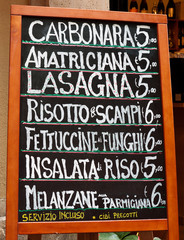 CARBONARA € 5,00
AMATRICIANA € 5,00
LASAGNA € 5,00
RISOTTO SCAMPI € 6,00
FETTUCCINE FUNGHI 6,00
INSALATA DI RISO € 5,00
MELANZANE ALLA PARMIGIANA € 6,00
SERVIZIO INCLUSO • CIBI PRECOTTI